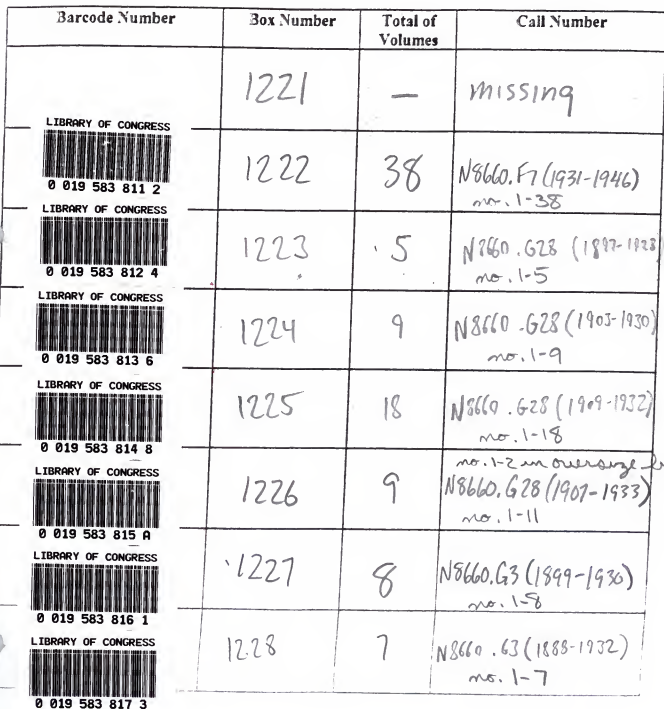 Barcode Number Box Number Total of Volumes Call Number
1221 — missing
LIBRARY OF CONGRESS
0 019 583 811 2
1222 38 N8660.F7 (1931-1946)
no. 1-38
LIBRARY OF CONGRESS
0 019 583 812 4
1223 5 N8660.G28 (1897-1928)
no. 1-5
LIBRARY OF CONGRESS
0 019 583 813 6
1224 9 N8660.G28 (1905-1930)
no. 1-9
LIBRARY OF CONGRESS
0 019 583 814 8
1225 18 N8660.G28 (1909-1932)
no. 1-18
LIBRARY OF CONGRESS
0 019 583 815 A
no. 1-2 in oversize
1226 9 N8660.G28 (1907-1933)
no. 1-11
LIBRARY OF CONGRESS
0 019 583 816 1
1227 8 N8660.G3 (1899-1930)
no. 1-8
LIBRARY OF CONGRESS
0 019 583 817 3
1228 7 N8660.G3 (1888-1932)
no. 1-7